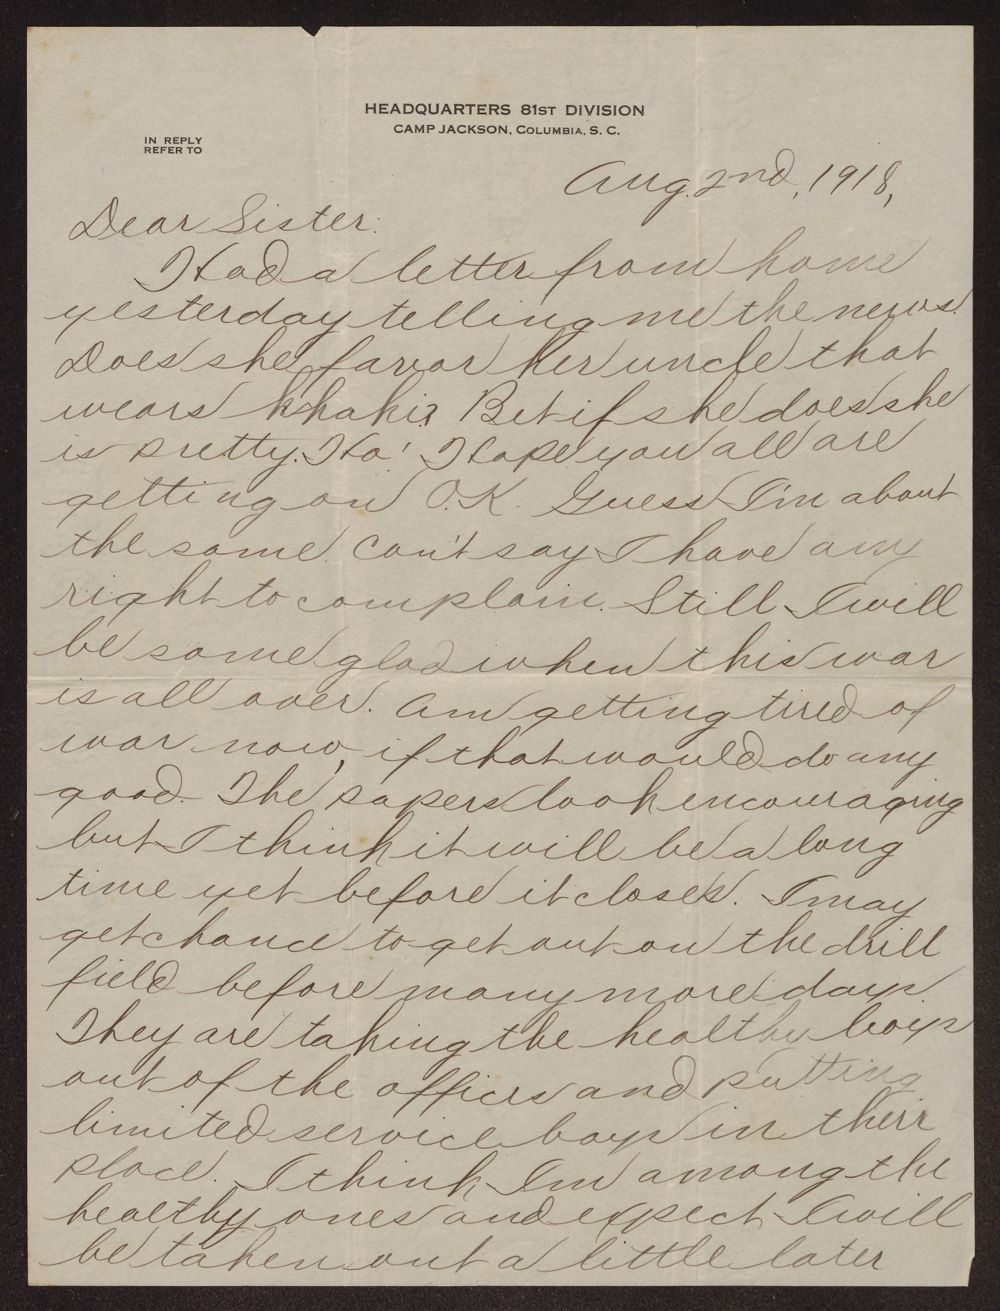 HEADQUARTERS 81ST DIVISION
CAMP JACKSON, COLUMBIA, S. C.
IN REPLY
REFER TO
Aug. 2nd, 1918,
Dear Sister:
Had a letter from home
yesterday telling me the news.
Does she farvor her uncle that
wears khaki? Bet if she does she
is pretty. Ha! Hope you all are
getting on O.K. Guess I'm about
the same. Can't say I have any
right to complain. Still I will
be some glad when this war
is all over. Am getting tired of
war now, if that would do any
good. The papers look encouraging
but I think it will be a long
time yet before it closes. I may
get chance to get out on the drill
field before many more days.
They are taking the healthy boys
out of the offices and putting
limited service boys in their
place. I think I'm among the
healthy ones and expect I will
be taken out a little later